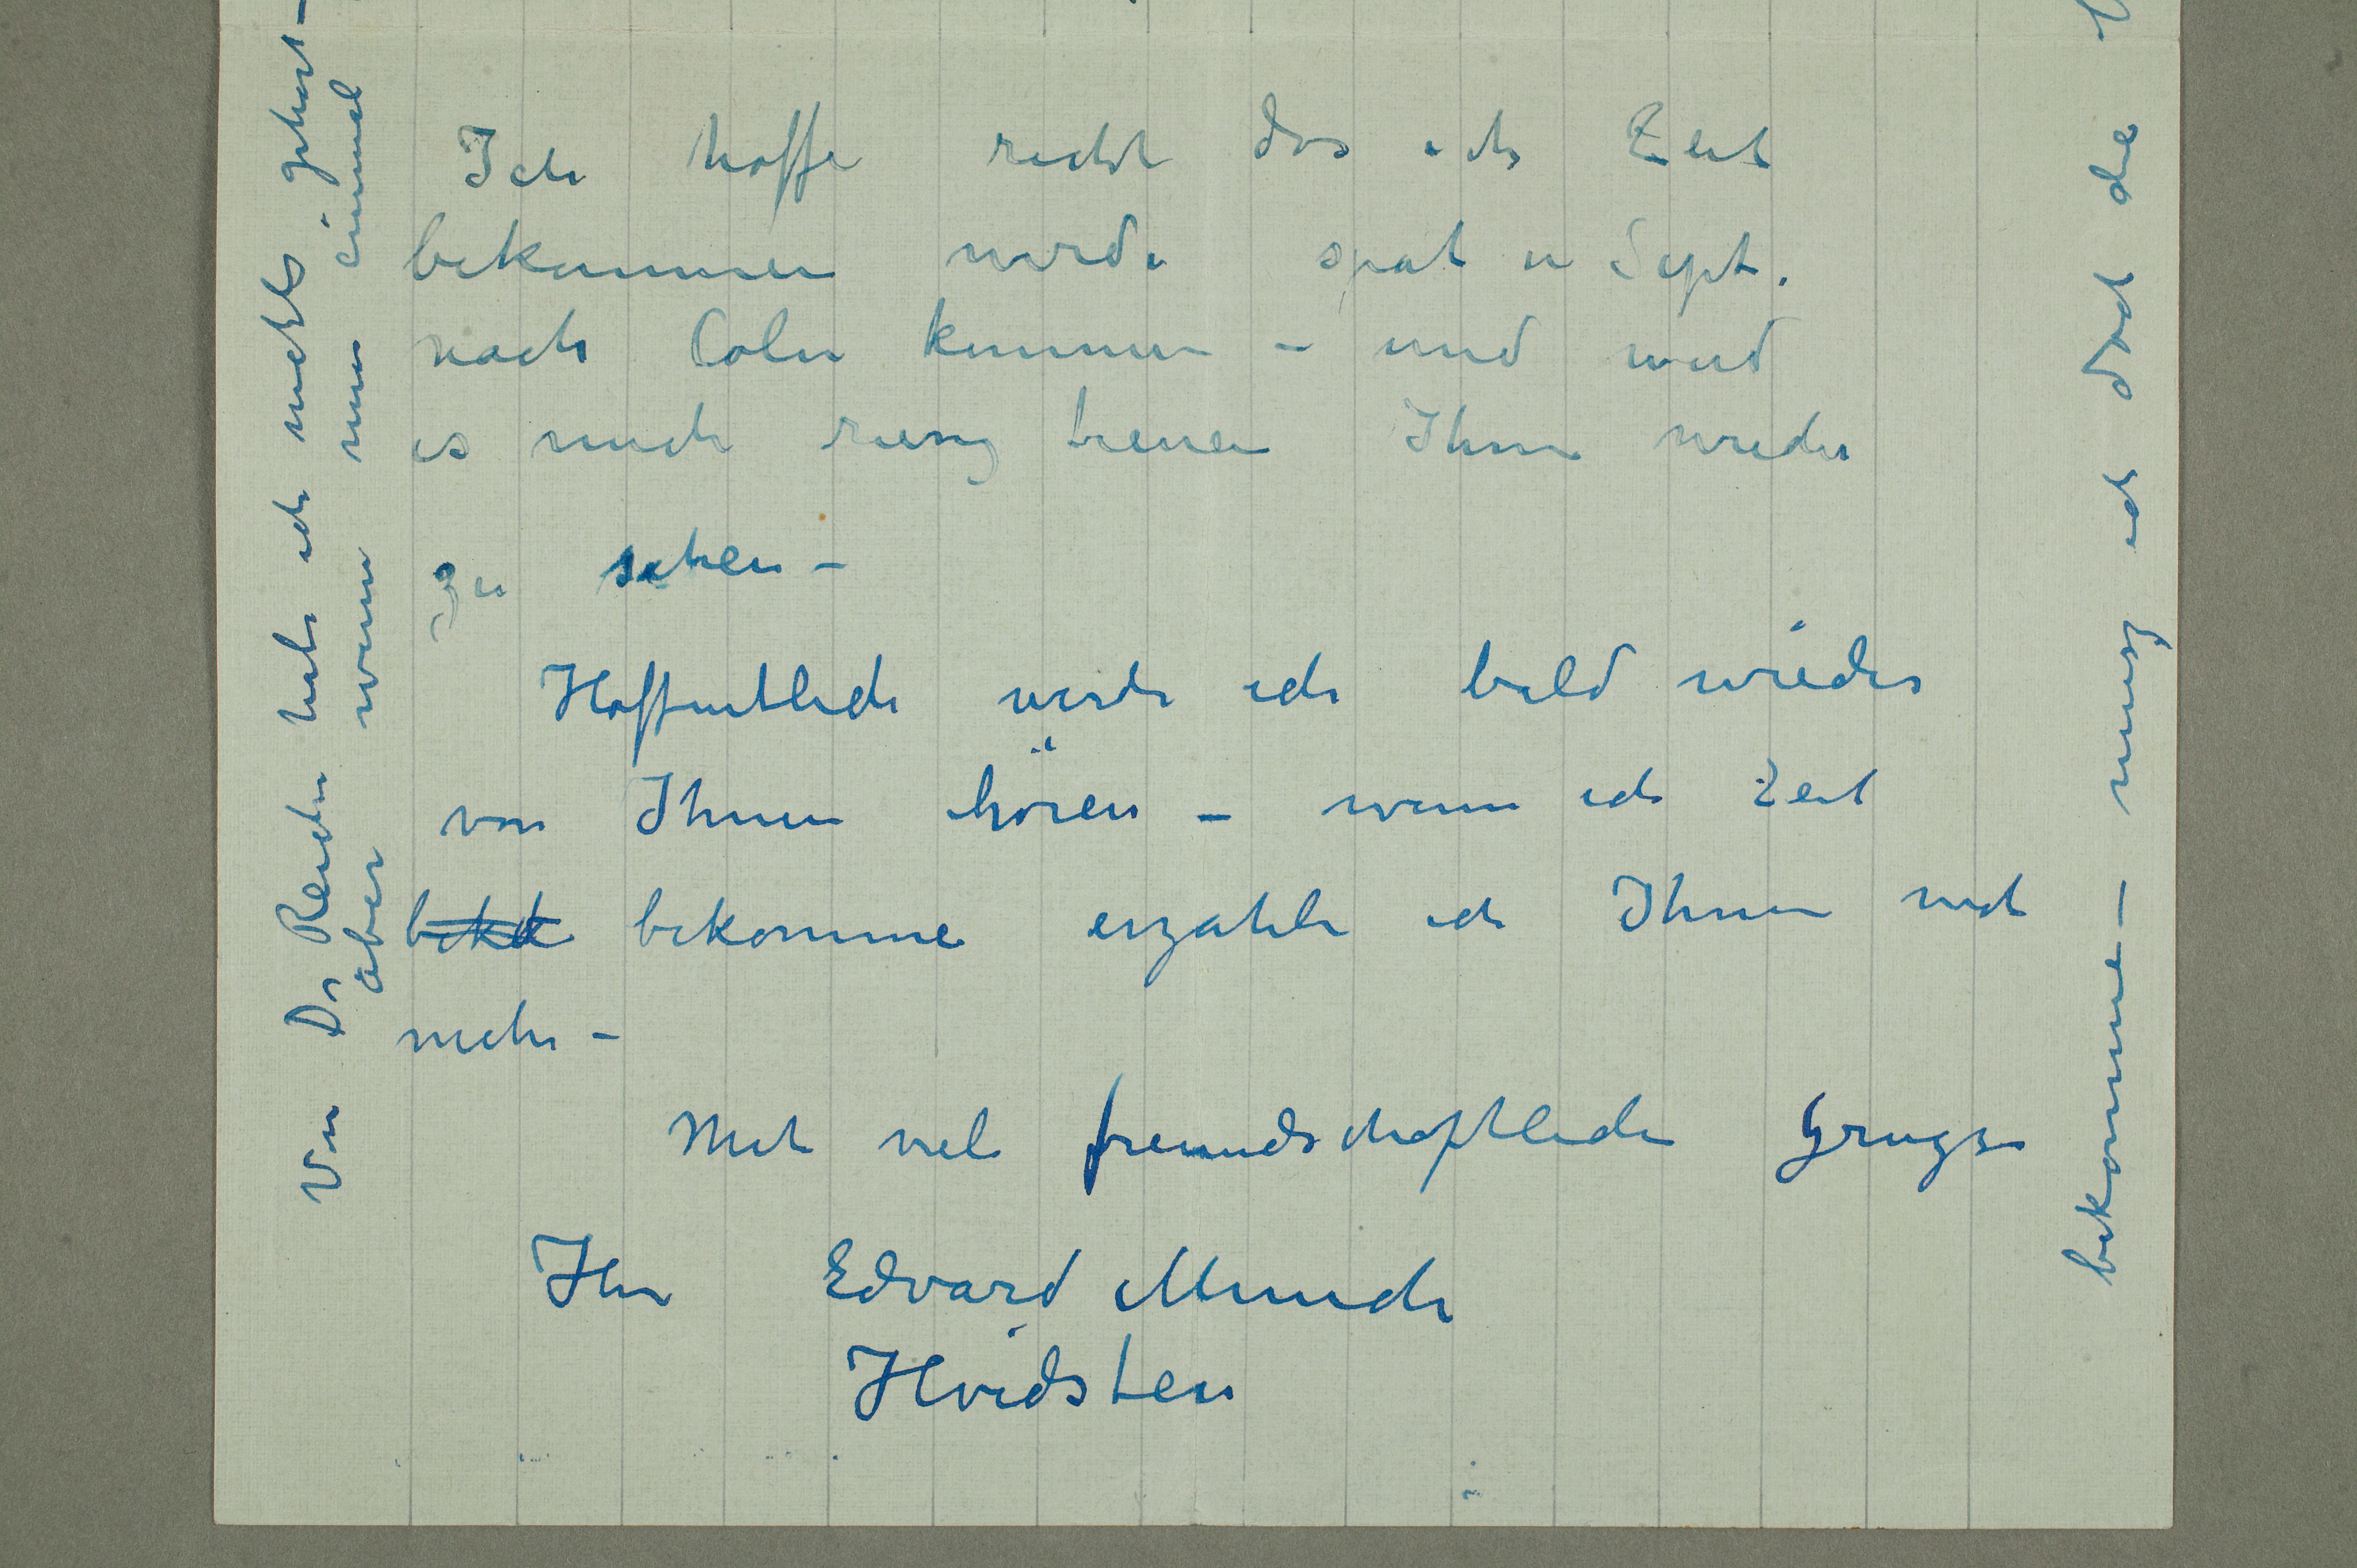 Ich hoffe recht das ich Zeit
bekommen werde spat in Sept.
nach Coln kommen – und wird
es mich riesig freuen Ihnen wieder
zu sehen –
Hoffentlich werde ich bald wieder
von Ihnen hören – wenn ich Zeit
bekomme erzahle ich Ihnen
mehr –
Mit viel freundschaftliche Grusze
Ihr Edvard Munch
Hvidsten
Von Dr Reiche habe ich nichts gehört –
aber wenn nun einmal
bekomme – musz ich doch die